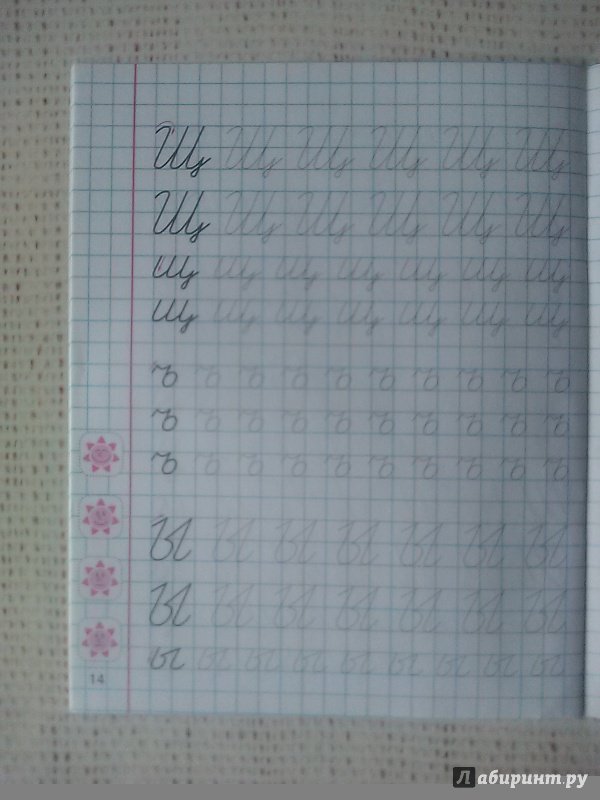 Щ Щ Щ Щ Щ Щ
Щ Щ Щ Щ Щ Щ
щ щ щ щ щ щ щ
щ щ щ щ щ щ щ
ъ ъ ъ ъ ъ ъ ъ ъ ъ ъ
ъ ъ ъ ъ ъ ъ ъ ъ ъ ъ
ъ ъ ъ ъ ъ ъ ъ ъ ъ ъ
Ы Ы Ы Ы Ы Ы Ы
Ы Ы Ы Ы Ы Ы Ы
ы ы ы ы ы ы ы ы ы
14
Лабиринт.ру